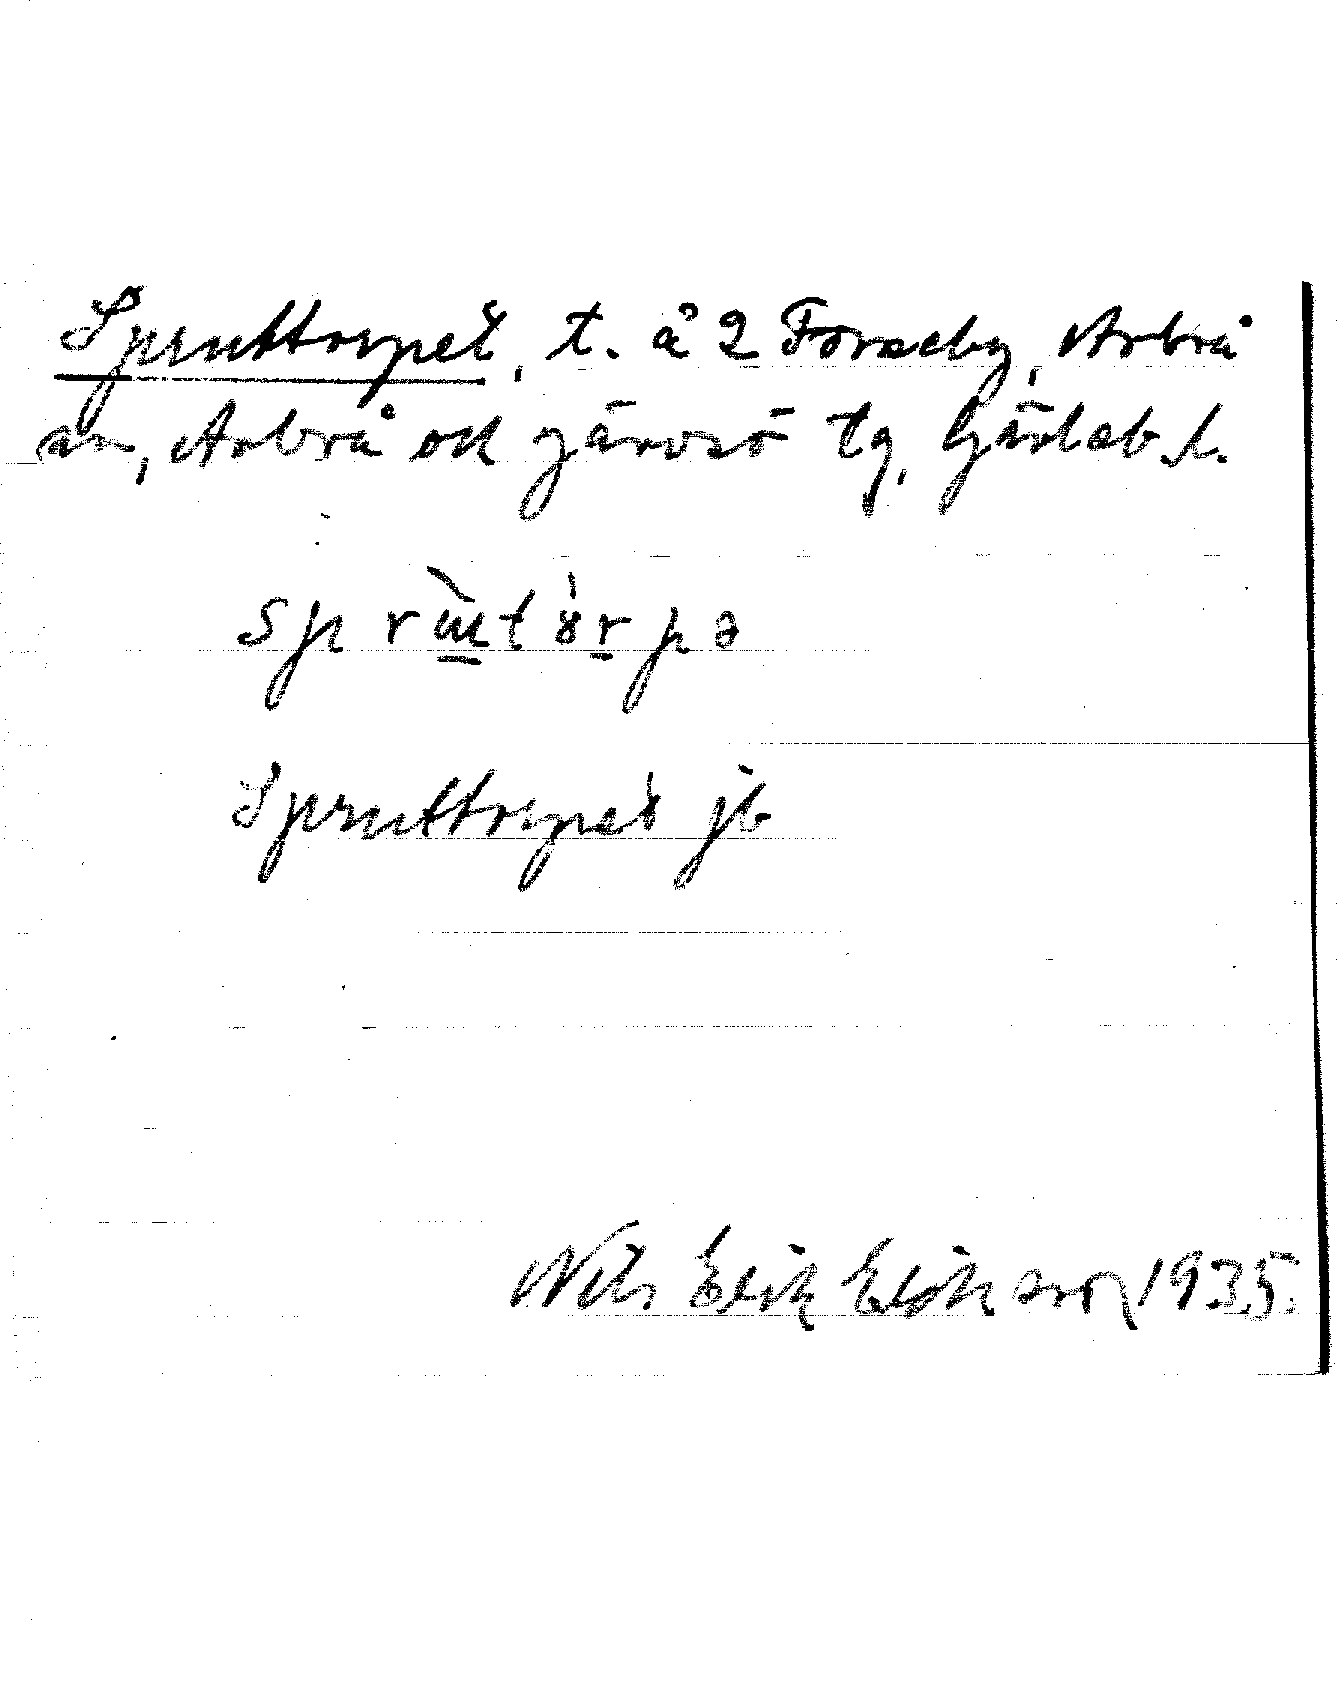 Spruttorpet, t. å 2 Forseby, Arbrå
sn, Arbrå och Järvsö tg, Gävleb. l.
sprùtórpə
Spruttorpet jb
Nils Erik Eriksson 1935.